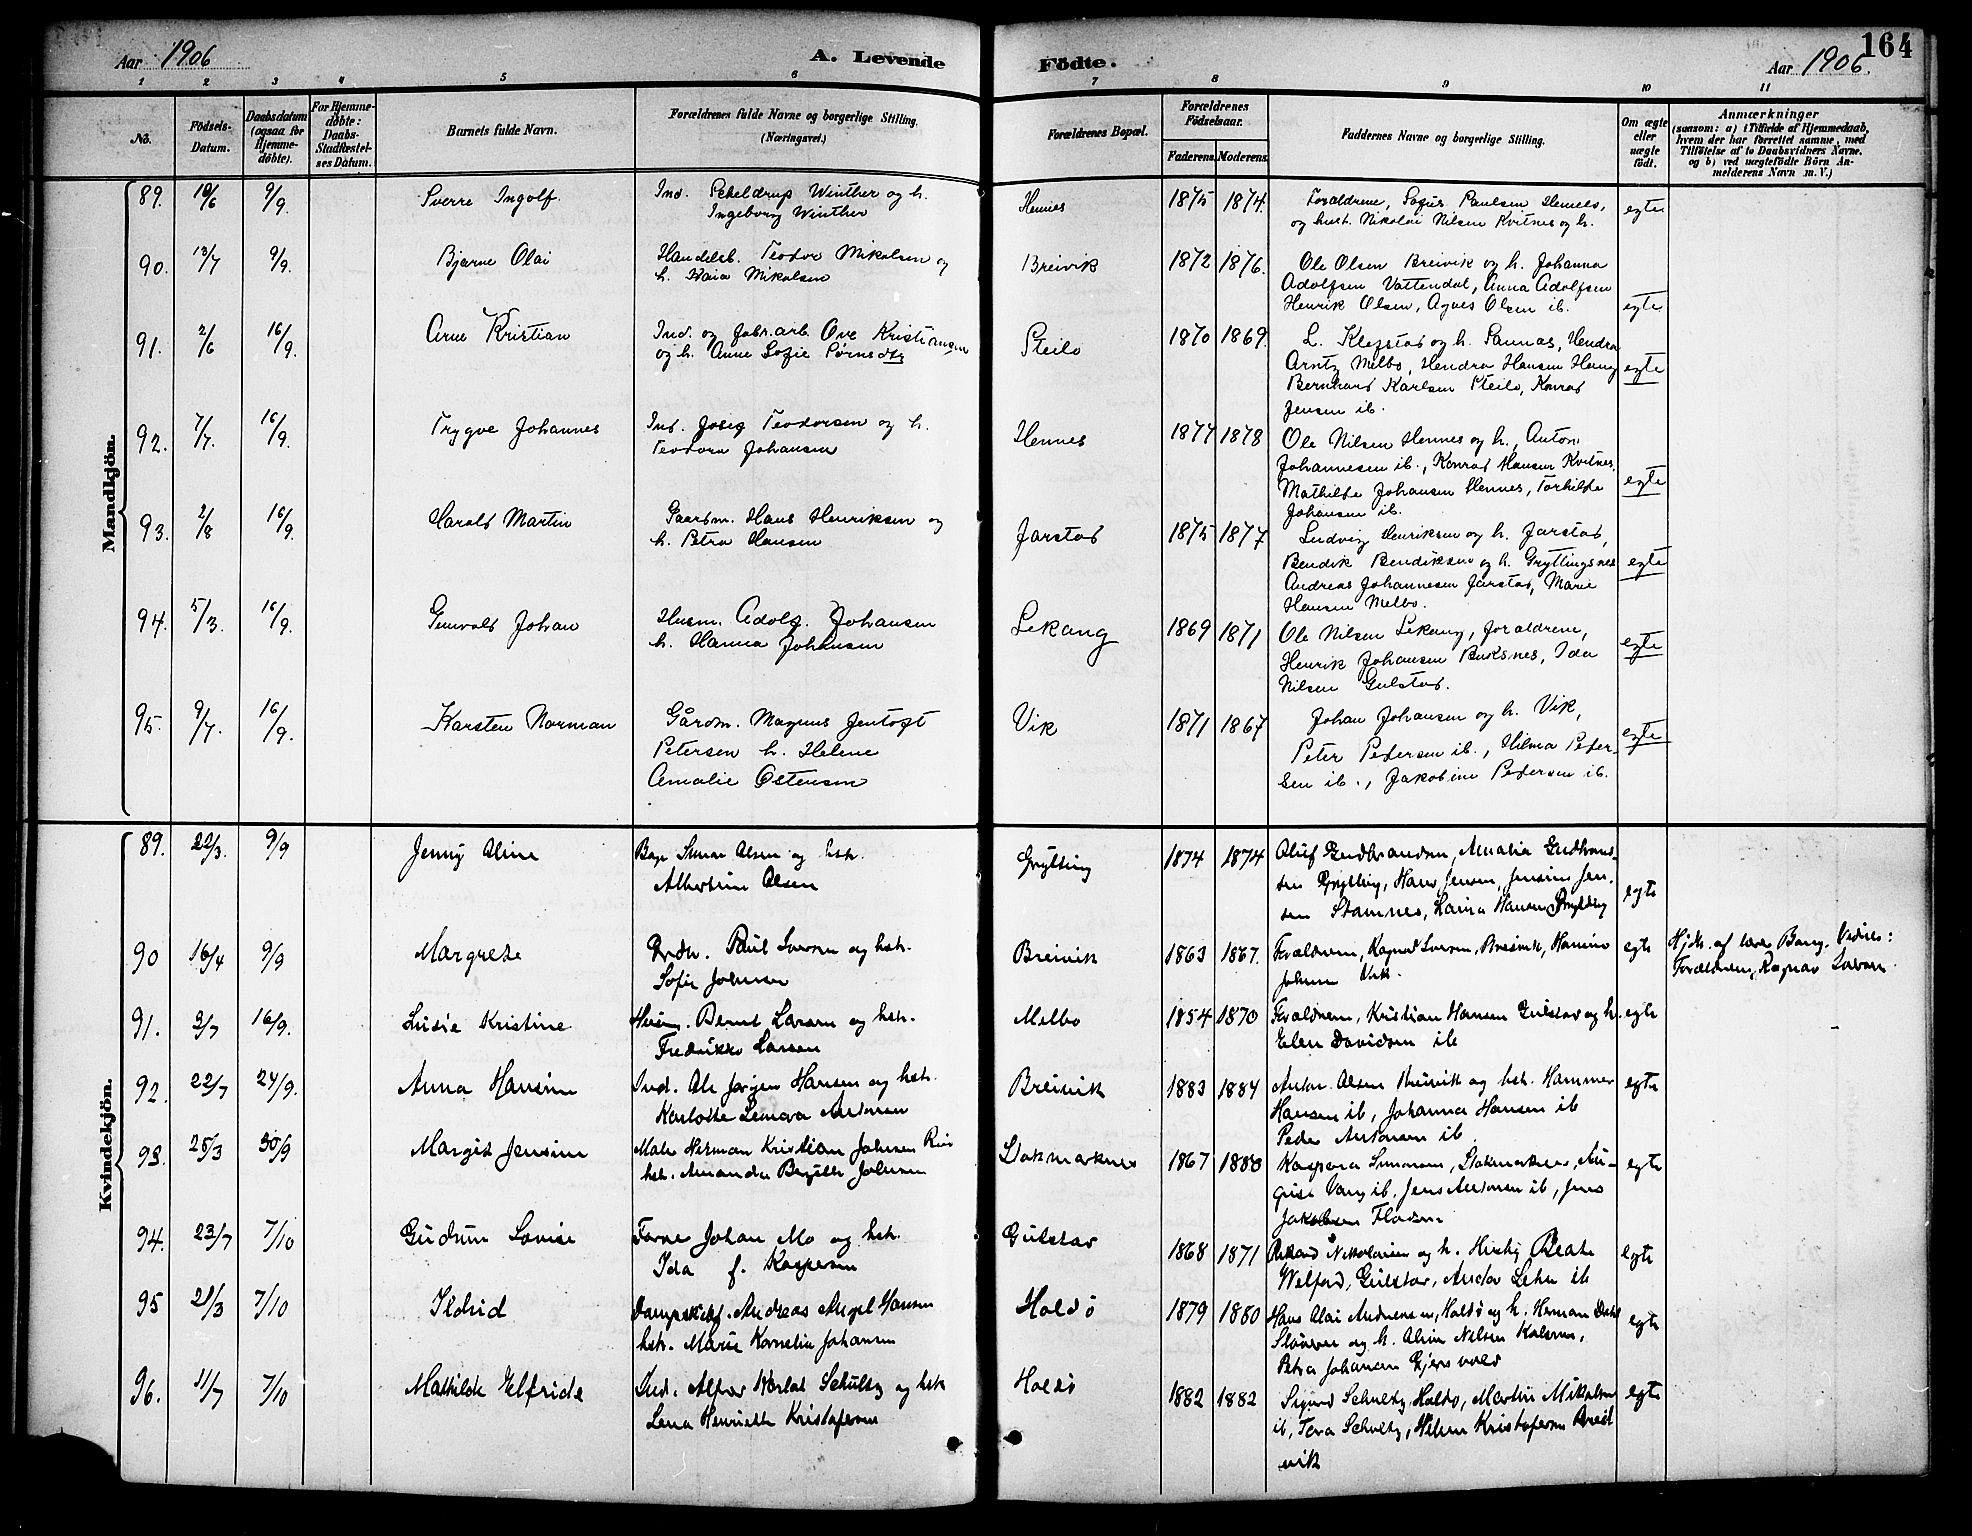 Aar 1906
A. Levende
Födte.
Aar 1906.
164
1 2 3 4 5 6 7 8 9 10 11
No.
Födsels-Datum.
Daabsdatum (ogsaa for Hjemme-döbte).
For Hjemme-döbte: Daabs-Stadfæstel-ses Datum.
Barnets fulde Navn.
Forældrenes fulde Navne og borgerlige Stilling.
(Næringsvei.)
Forældrenes Bopæl.
Forældrenes Födselsaar.
Faderens. Moderens.
Faddernes Navne og borgerlige Stilling.
Om ægte eller uægte födt.
Anmærkninger
(saasom: a) i Tilfælde af Hjemmedaab,
hvem der har forrettet samme, med
Tilföielse af to Daabsvidners Navne.
og b) ved uægtefödte Börn An-
melderens Navn m. V.)
Mandkjön.
89. 10/6 9/9. Sverre Ingolf. Ind. Scheldrup Winther og h. Hennes 1875 1874. Foraldrene, Sofus Paulsen Hennes, egte
Ingeborg Winther
og hust. Nikolai Nilsen Kvitnes og h.
90. 13/7 9/9. Bjarne Olai Handelsb. Teodor Mikalsen og Breivik 1872 1876. Ole Olsen Breivik og h. Johanna
h. Kaia Mikalsen
Adolfsen Vattendal, Anna Adolfsen
Henrik Olsen, Agnes Olsen ib. egte
91. 2/6 16/9. Arne Kristian Ind. og fabr.arb. Ove Kristiansen Steilo 1870 1869. L. Klefstad og h. Sannas, Hendra
og h. Anne Sofie Sørnsdtr
Arntz Melbo, Hendra Hansen Heng egte
Bernhard Karlsen Steilo, Konrad
Jensen ib.
92. 7/7. 16/9. Trygve Johannes Ind. Josef Teodorsen og h. Hennes 1877 1878 Ole Nilsen Hennes og h., Anton
Teodora Johansen
Johannesen ib., Konrad Hansen Kvitnes,
Mathilde Johansen Hennes, Torhilde egte
Johansen ib.
93. 2/8 16/9. Harald Martin Gaardm. Hans Henriksen og Jarstad 1875 1877 Ludvig Henriksen og h. Jarstad,
h. Petra Hansen
Bendik Bendiksen og h. Gryttingsnes egte
Andreas Johannesen Jarstad, Marie
Hansen Melbo.
94. 5/3. 16/9. Gunvald Johan Husm. Adolf Johansen Lekang 1869 1871 Ole Nilsen Lekang, foraldrene, egte
h. Hanna Johansen
Henrik Johansen Buksnes, Ida
Nilsen Gulstad.
95. 9/7. 16/9. Karsten Norman Gårdm. Magnus Jentoft Vik 1871 1867 Johan Johansen og h. Vik, egte
Petersen h. Helene
Peter Pedersen ib., Hilma Peder-
Amalie Ostensen
sen ib., Jakobine Pedersen ib.
Kvindekjön.
89. 22/3. 9/9 Jenny Aline Olsen og hstr. Grytting 1874 1874 Oluf Gudbrandsen, Amalia Gudbrand-
Albertine Olsen
sen Grytting, Hans Jensen, Jensine Jen-
sen Stamnes, Laura Hansen Grytting egte
90 16/4 9/9 Margrete Paul Iversen og hstr. Breivik 1863 1867. Forældrene, Ragnar Iversen, Breivik, egte Hjdb. af lærer Bang. Vidner:
Sofie Johnsen
Johnsen Vik.
Forældrene, Ragnar Iversen
91. 2/7 16/9. Lusie Kristine Husm. Bernt Larsen og hstr. Melbo 1854 1870 Forældrene, Kristian Hansen Gulstad og h. egte
Fredrikke Larsen
Elen Davidsen ib
92. 22/7 24/9. Anna Hansine Ind. Ole Jørgen Hansen og hstr. Breivik 1883 1884 Anton Olsen Breivik og hstr. Hammer egte
Karlotte Lenora Antonsen
Hansen ib, Johanna Hansen ib
Peder Antonsen ib.
93. 25/3 30/9 Margit Jensine Maler Herman Kristian Johnsen Stokmarknes 1867 1880 Kaspara Simonsen, Stokmarknes, Au- egte
hstr. Amanda Johnsen
guste Vang ib. Jens Antonsen ib, Jens
Jakobsen
94. 23/7 7/10 Gudrun Lovise Johan Mo og hstr. Gulstad 1868 1871 Rikard Nikolaisen og h. Beate egte
Ida f. Kaspersen
Gulstad, ib
95 21/3 7/10 Ildrid Andreas Angel Hansen Holdö 1879 1880 Hans Olai Andreassen, Holdö og h. Herman Dahl egte
hstr. Marie Kornelia Johansen
og h. Nilsen
Petra Johansen
96. 11/7 7/10 Mathilde Elfride Ind. Alfred Schultz og hstr Holdö 1882 1882 Sigurd Schultz Holdö, Martin Mikalsen egte
Lena Henriette Kristofersen
ib, Tora Schultz, Helene Kristofersen Breid
vik